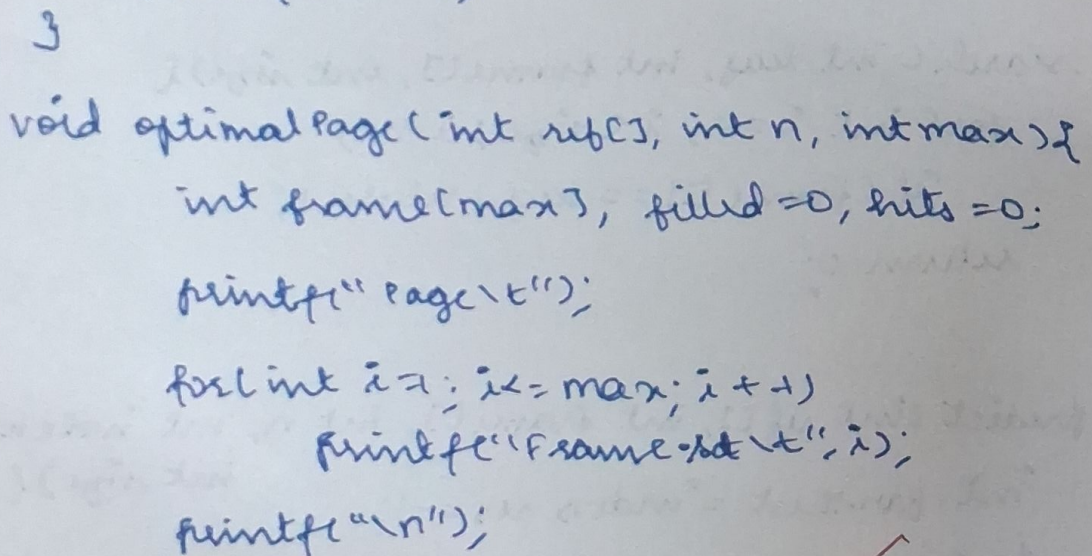 }
void optimalPage(int ref[], int n, int max){
int frame[max], filled=0, hits=0;
printf("Page\t");
for(int i=1; i<=max; i++)
printf("Frame%d\t", i);
printf("\n");